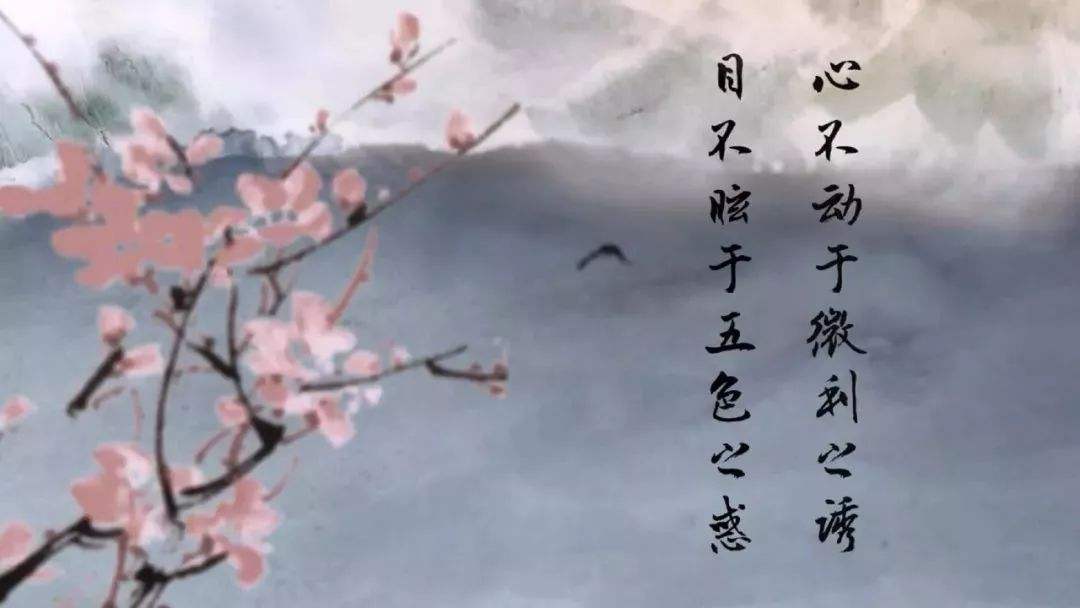 心不动于微利之诱
目不眩于五色之惑